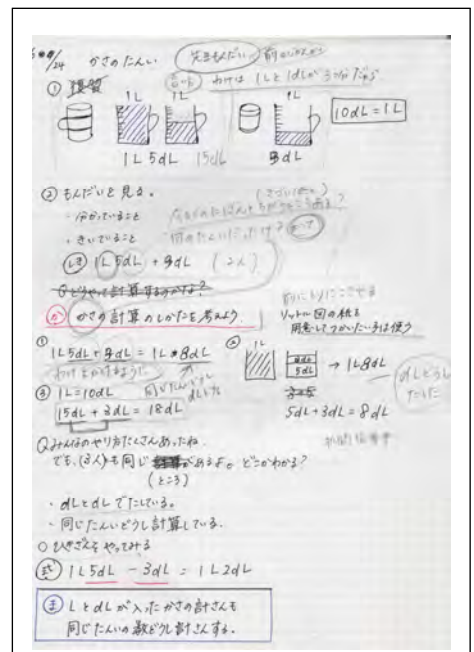 /24 かさのたんい
① 1L 1L 1L
わけは 1Lと1dLが
10dL=1L
1L5dL 15dL 3dL
② もんだいを見る。
・分かっていること
・きいていること
しき 1L5dL + 3dL (2人)
Qどうやって計算するのかな?
か かさの計算のしかたを考えよう。
リットル図の紙を
用意してつかいたい子は使う
① 1L5dL + 3dL = 1L8dL
わけもかけるように
② 3dL
5dL
→ 1L8dL
3+5
5dL+3dL=8dL
③ 1L=10dL
15dL + 3dL = 18dL
Qみんなのやり方たくさんあったね
でも、(3人)も同じ
があるよ。どこかわかる?
(ところ)
・dLとdLでたしている。
・同じたんいどうし計算している。
○ひきざんをやってみる
式 1L5dL - 3dL = 1L2dL
ま LとdLが入ったかさの計さんも
同じたんいの数どうし計さんする。